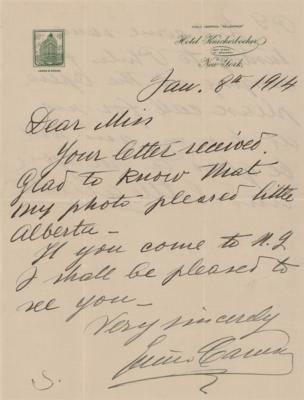 Hotel Knickerbocker
New York
Jan. 8th 1914
Dear Miss
Your letter received.
Glad to know that
my photo pleased little
Alberta –
If you come to N.Y
I shall be pleased to
see you –
Very sincerely
Enrico Caruso